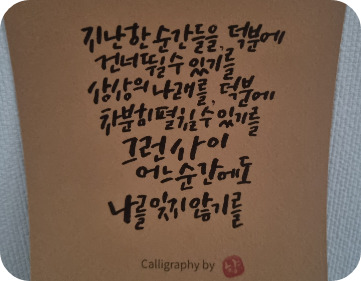 지난한 순간들을, 덕분에
건너뛸 수 있기를
상상의 나래를, 덕분에
차분히 펼칠 수 있기를
그런 사이
어느 순간에도
나를 잊지 않기를
Calligraphy by